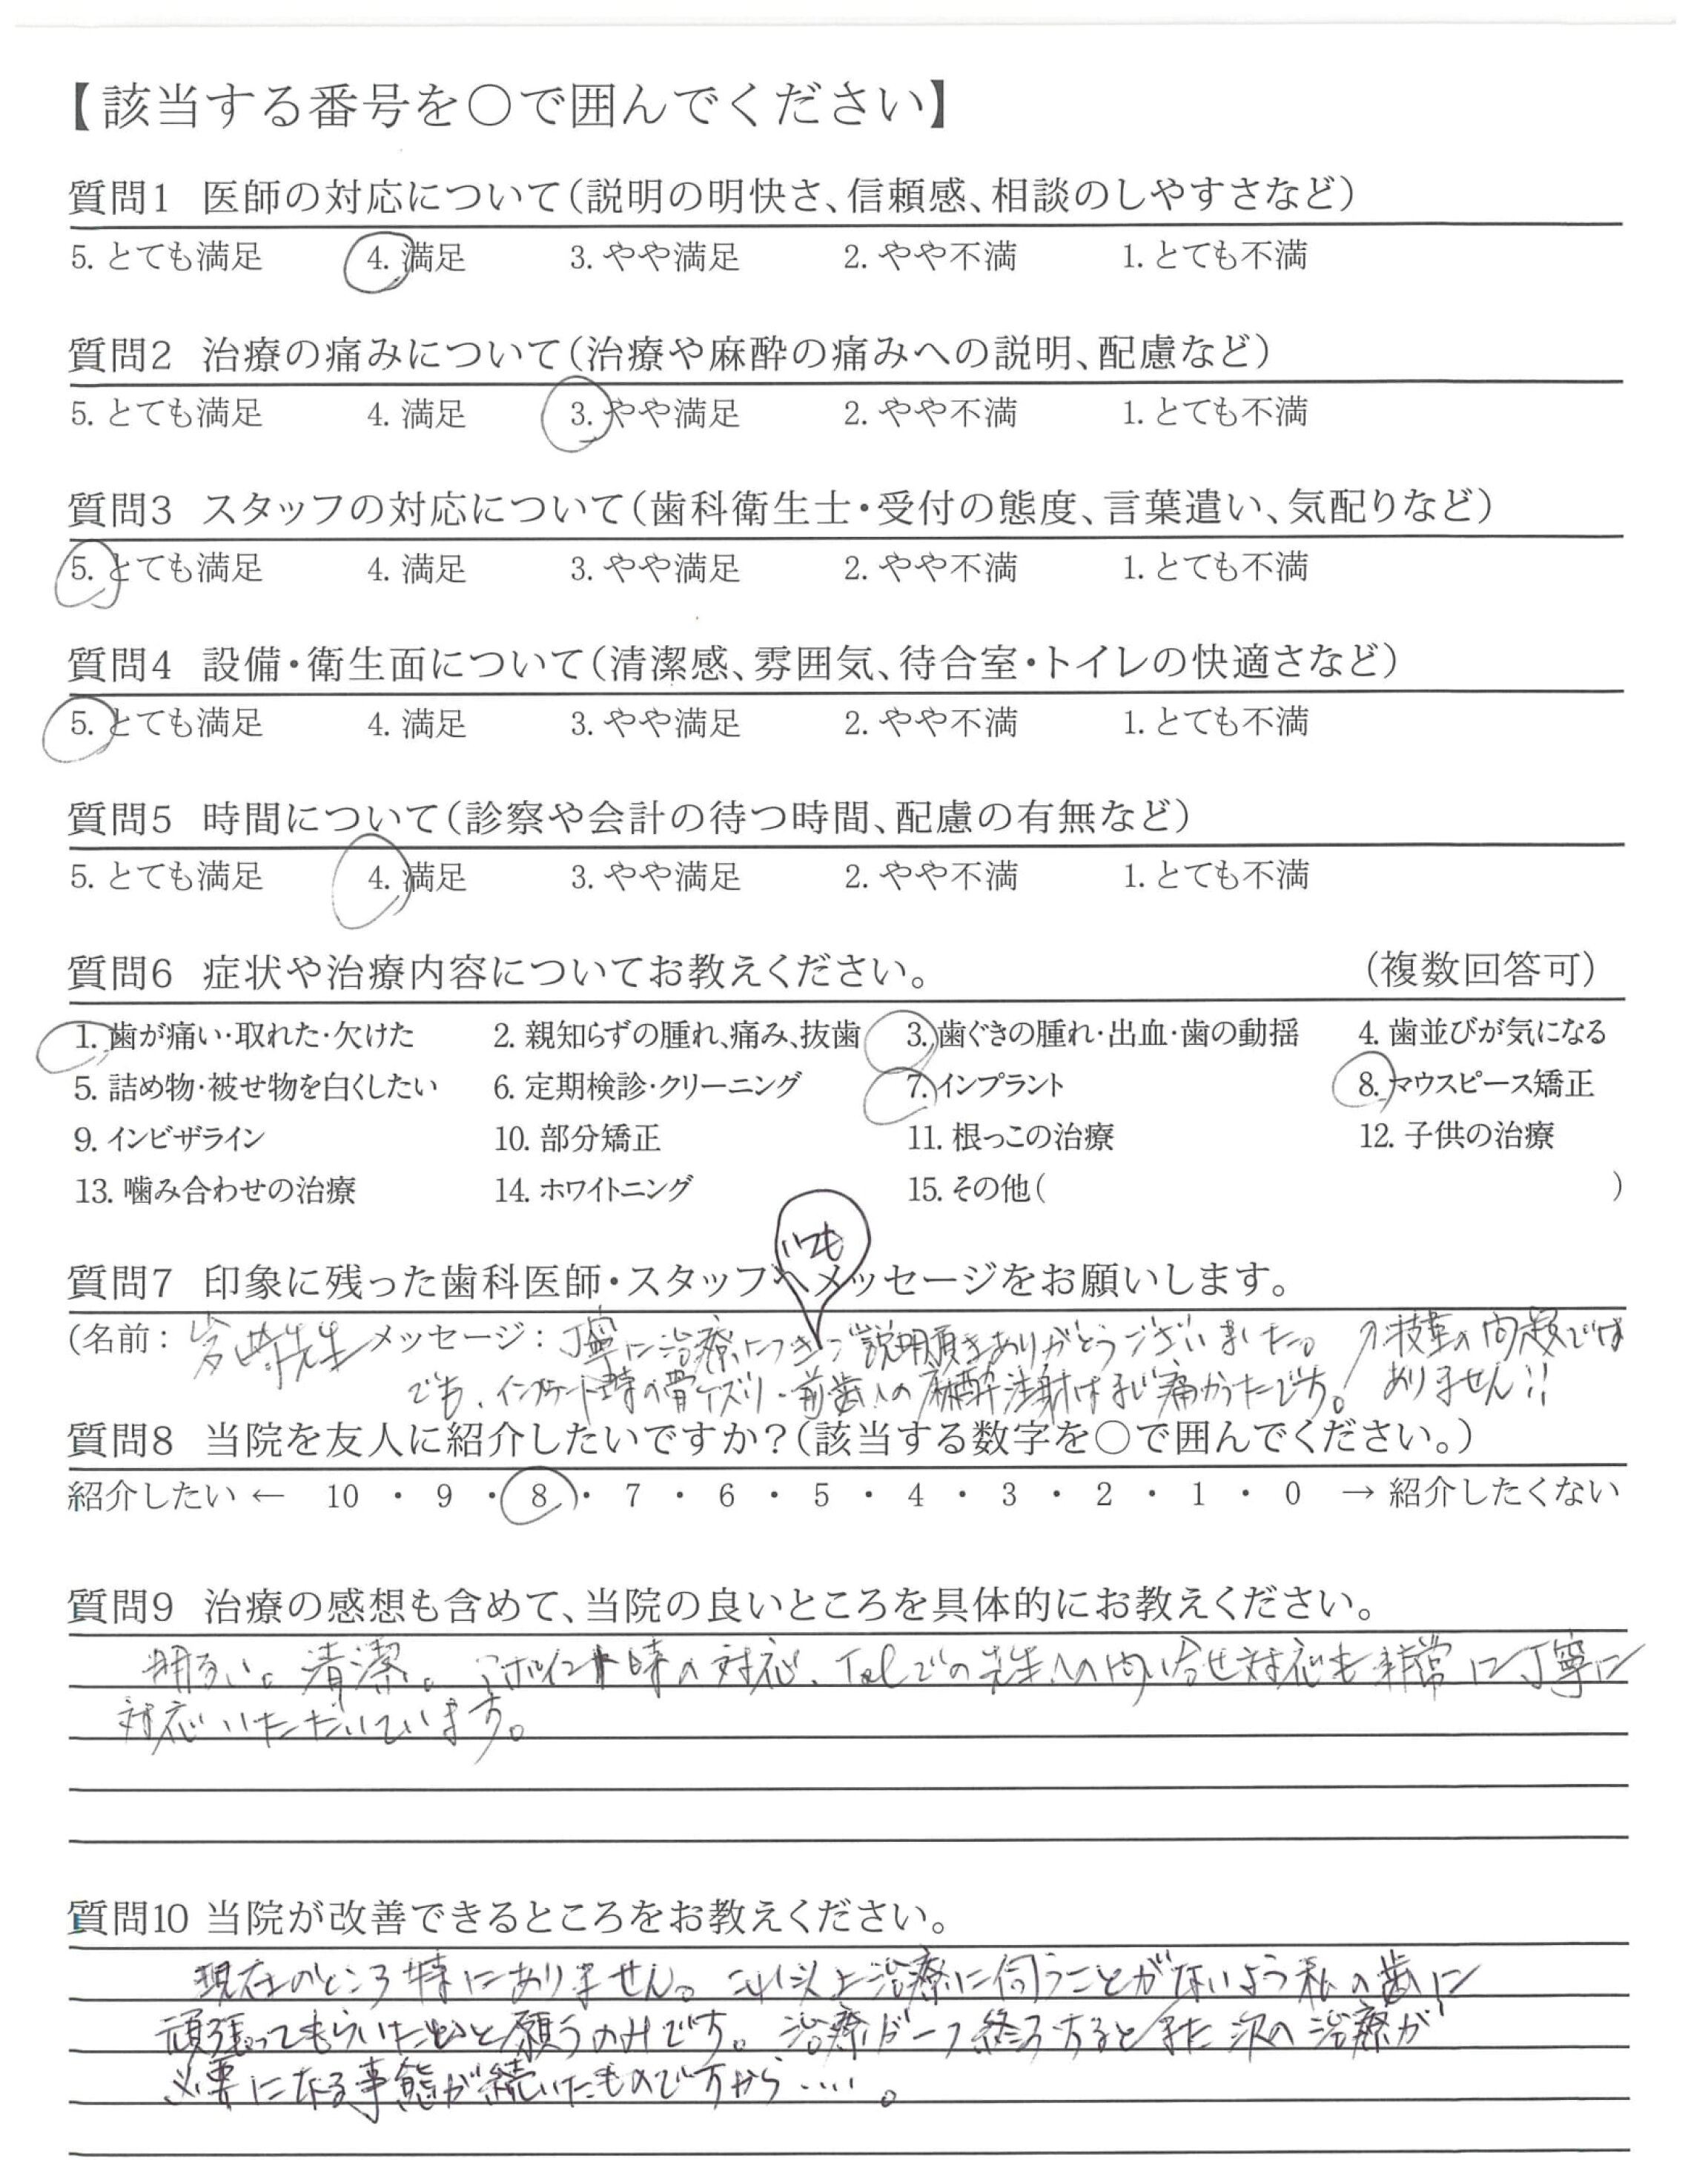 【該当する番号を○で囲んでください】
質問1 医師の対応について(説明の明快さ、信頼感、相談のしやすさなど)
5. とても満足 4. 満足 3. やや満足 2. やや不満 1. とても不満
質問2 治療の痛みについて(治療や麻酔の痛みへの説明、配慮など)
5. とても満足 4. 満足 3. やや満足 2. やや不満 1. とても不満
質問3 スタッフの対応について(歯科衛生士・受付の態度、言葉遣い、気配りなど)
5. とても満足 4. 満足 3. やや満足 2. やや不満 1. とても不満
質問4 設備・衛生面について(清潔感、雰囲気、待合室・トイレの快適さなど)
5. とても満足 4. 満足 3. やや満足 2. やや不満 1. とても不満
質問5 時間について(診察や会計の待つ時間、配慮の有無など)
5. とても満足 4. 満足 3. やや満足 2. やや不満 1. とても不満
質問6 症状や治療内容についてお教えください。 (複数回答可)
1. 歯が痛い・取れた・欠けた 2. 親知らずの腫れ、痛み、抜歯 3. 歯ぐきの腫れ・出血・歯の動揺 4. 歯並びが気になる
5. 詰め物・被せ物を白くしたい 6. 定期検診・クリーニング 7. インプラント 8. マウスピース矯正
9. インビザライン 10. 部分矯正 11. 根っこの治療 12. 子供の治療
13. 噛み合わせの治療 14. ホワイトニング 15. その他( )
いつも
質問7 印象に残った歯科医師・スタッフへメッセージをお願いします。
(名前: 先生 メッセージ: 丁寧に治療につきご説明頂きありがとうございました。 技量の問題では
でも、インプラント時の骨ケズリ・前歯への麻酔注射は 痛かったです。 ありません!!
質問8 当院を友人に紹介したいですか?(該当する数字を○で囲んでください。)
紹介したい ← 10 ・ 9 ・ 8 ・ 7 ・ 6 ・ 5 ・ 4 ・ 3 ・ 2 ・ 1 ・ 0 → 紹介したくない
質問9 治療の感想も含めて、当院の良いところを具体的にお教えください。
明るい。清潔。アポイント時の対応、Telでの先生への問い合せ対応も非常に丁寧に
対応いただいています。
質問10 当院が改善できるところをお教えください。
現在のところ特にありません。これ以上治療に伺うことがないよう私の歯に
頑張ってもらいたいと願うのみです。治療が一つ終了するとまた次の治療が
必要になる事態が続いたものですから‥‥。